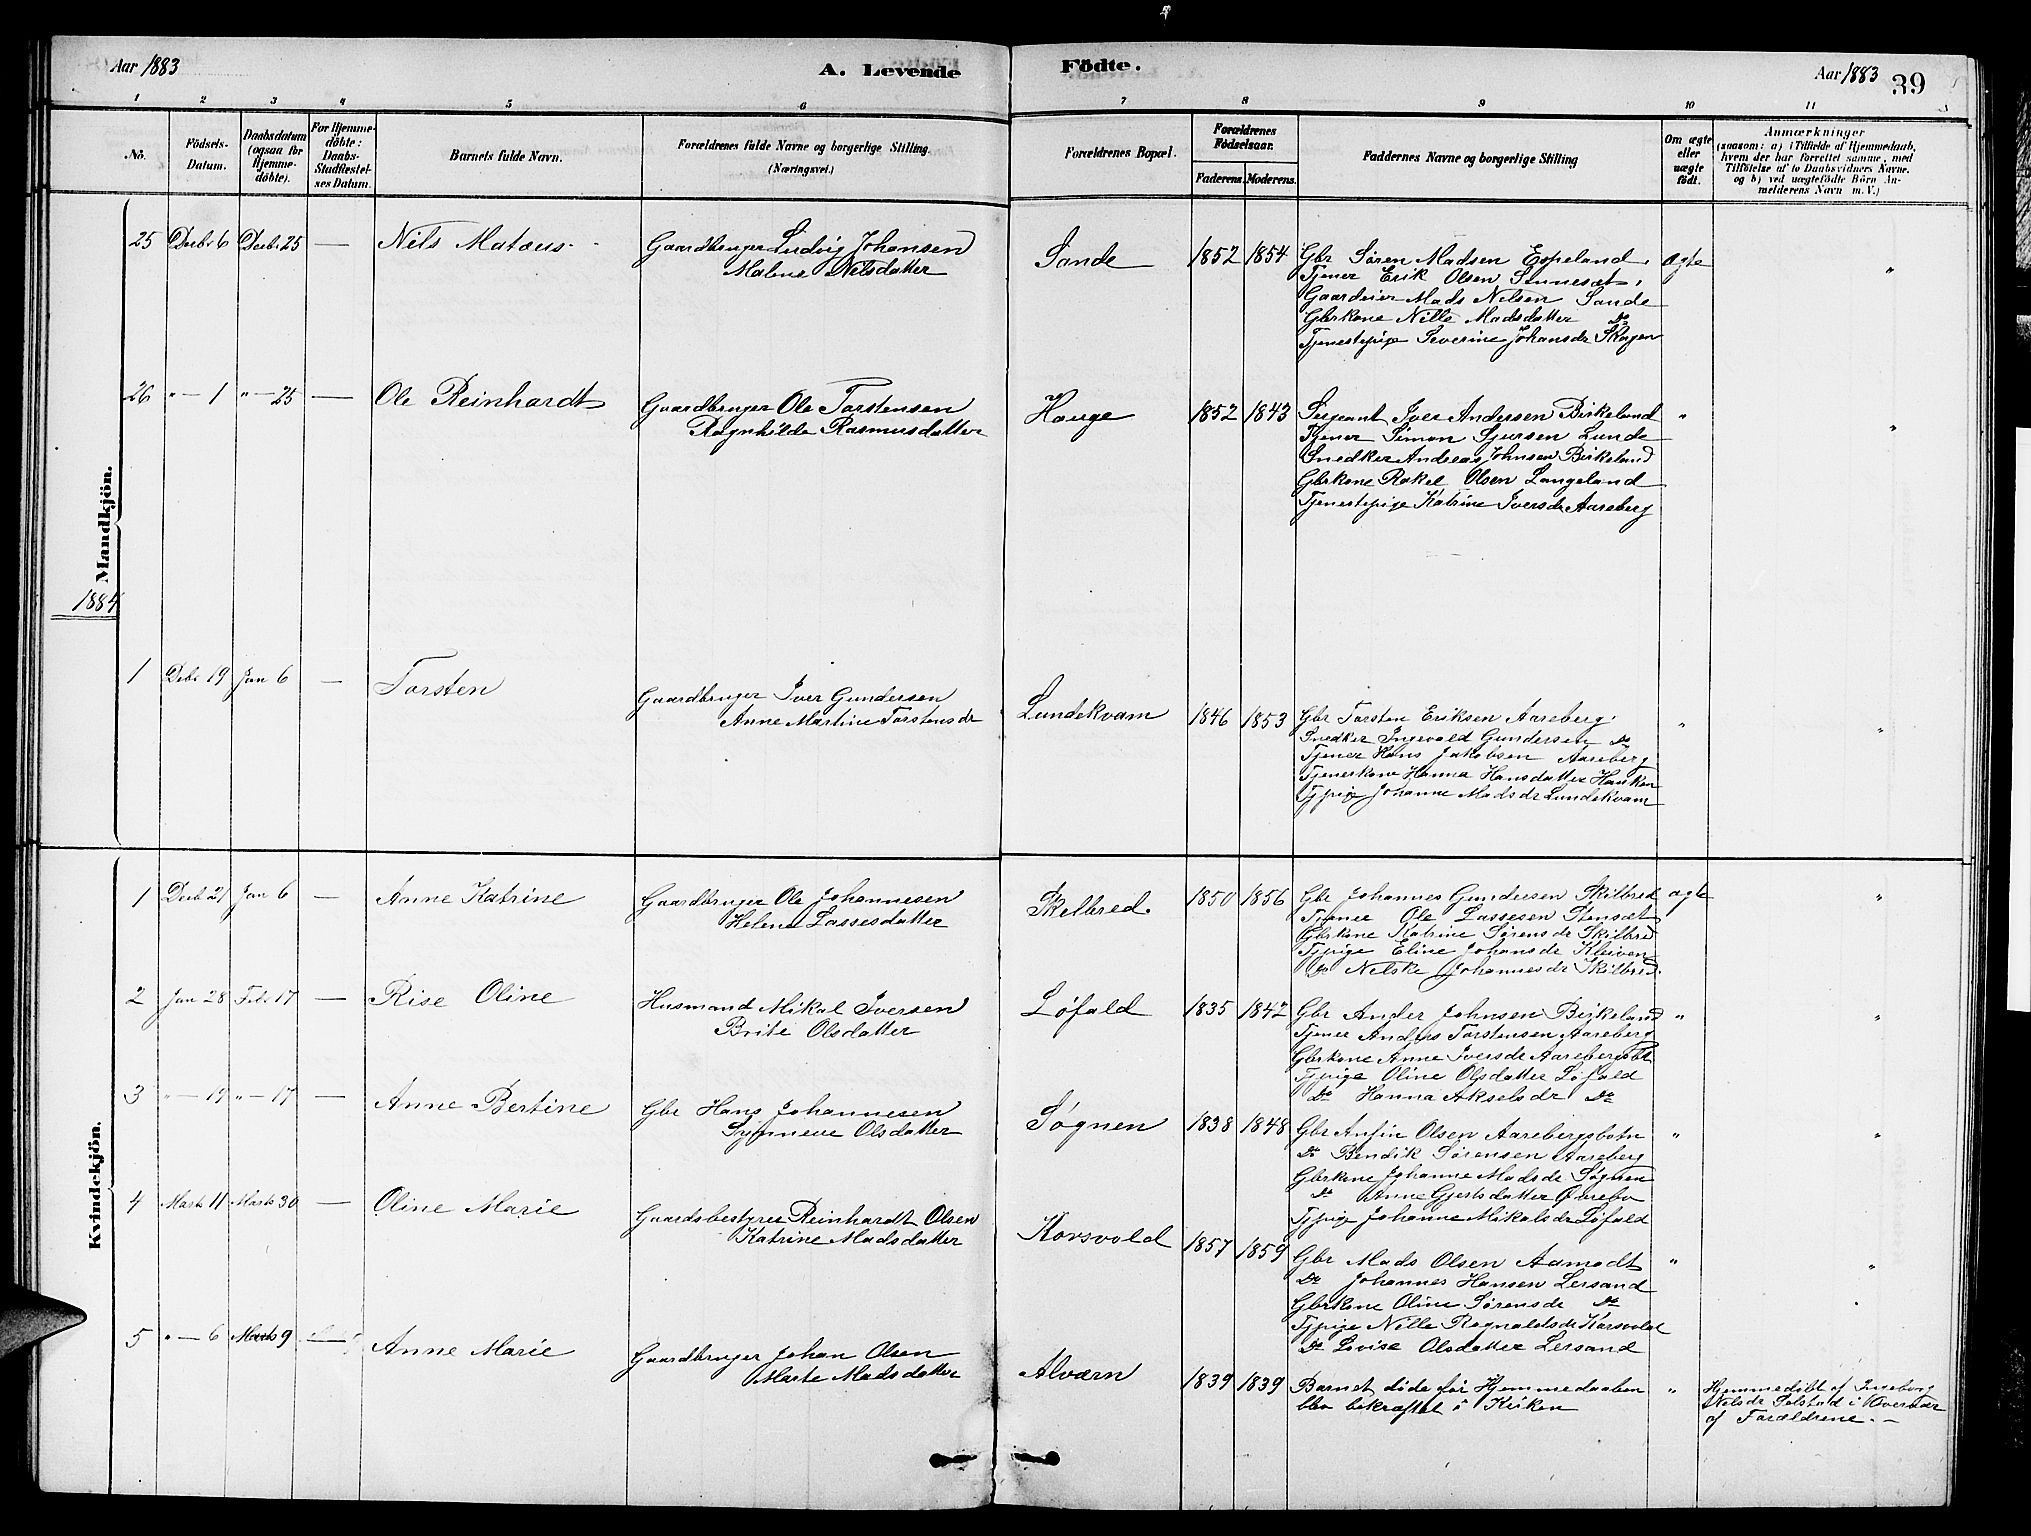 Aar 1883
A. Levende
Födte.
Aar 1883
39
1 2 3 4 5 6 7 8 9 10 11
No.
Födsels-Datum.
Daabsdatum (ogsaa for Hjemme-döbte).
For Hjemme-döbte: Daabs-Stadfæstel-ses Datum.
Barnets fulde Navn.
Forældrenes fulde Navne og borgerlige Stilling (Næringsvei.)
Forældrenes Bopæl.
Forældrenes Födselsaar.
Faderens. Moderens.
Faddernes Navne og borgerlige Stilling
Om ægte eller uægte födt.
Anmærkninger
(saasom: a) i Tilfælde af Hjemmedaab,
hvem der har forrettet samme, med
Tilföielse af to Daabsvidners Navne.
og b) ved uægtefödte Börn An-
melderens Navn m. V.)
Mandkjön.
25 Decbr 6 Decbr 25 — Nils Matæus
Gaardbruger Ludvig Johansen
Malene Nilsdatter
Sande 1852 1854
Gbr Søren Madsen Espeland
Tjener Erik Olsen
Gaardeier Mads Nilsen Sande
Gbrkone Nille Madsdatter Do
Tjenestepige Severine Johansdr Skogen
ægte "
26 " — 1 " — 25 — Ole Reinhardt
Gaardbruger Ole Torstensen
Ragnhilde Rasmusdatter
Hauge 1852 1843
Sergeant Iver Andersen Birkeland
Tjener Simon Sjursen Lunde
Snedker Andreas Johnsen Birkeland
Gbrkone Rakel Olsen Langeland
Tjenestepige Katrine Iversdr Aareberg
" "
1884
1 Debr 19 Jan 6 — Torsten
Gaardbruger Iver Gundersen
Anne Martine Torstensdr
Lundekvam 1846 1853
Gbr Torsten Eriksen Aareberg
Snedker Ingevald Gundersen Do
Tjener Hans Jakobsen Aareberg
Tjenerkone Hanna Hansdatter
Tjpige Johanne Madsdr Lundekvam
" "
Kvindekjön.
1 Decb 21 Jan 6 — Anne Katrine
Gaardbruger Ole Johannesen
Helene Lassesdatter
Skelbred 1850 1856
Gbr Johannes Gundersen Skilbred
Tjener Ole Lassesen Stensæt
Gbrkone Katrine Sørensdr Skilbred
Tjpige Eline Johansdr Kleiven
Do Nilske Johannesdr Skilbred
ægte "
2 Jan 28 Febr 17 — Rise Oline
Husmand Mikal Iversen
Brite Olsdatter
Løfald 1835 1842
Gbr Ander Johnsen Birkeland
Tjener Anders Torstensen Aareberg
Gbrkone Anne Iversdr Aarebergsbt
Tjpige Oline Olsdatter Løfald
Do Hanna Akselsdr Do
" "
3 " — 19 " — 17 — Anne Bertine
Gbr Hans Johannesen
Synneve Olsdatter
Søgnen 1838 1848
Gbr Anfin Olsen Aarebergsbotn
Do Bendik Sørensen Aareberg
Gbrkone Johanne Madsdr Søgnen
Do Anne Gjertsdatter Øvrebø
Tjpige Johanne Mikalsdr Løfald
" "
4 Marts 11 Marts 30 — Oline Marie
Gaardsbestyrer Reinhardt Olsen
Katrine Madsdatter
Korsvold 1857 1859
Gbr Mads Olsen Aamodt
Do Johannes Hansen Lersand
Gbrkone Oline Sørensdr Do
Tjpige Nille Ragnaldsdr Korsvold
Do Lovise Olsdatter Lersand
" "
5 " — 6 Marts 9 — Anne Marie
Gaardbruger Johan Olsen
Marte Madsdatter
Alværn 1839 1839
Barnet døde før Hjemmedaaben
blev bekræftet i Kirken
"
Hjemmedøbt af Ingeborg
Nilsdr Solstad i Overvær
af Forældrene. —